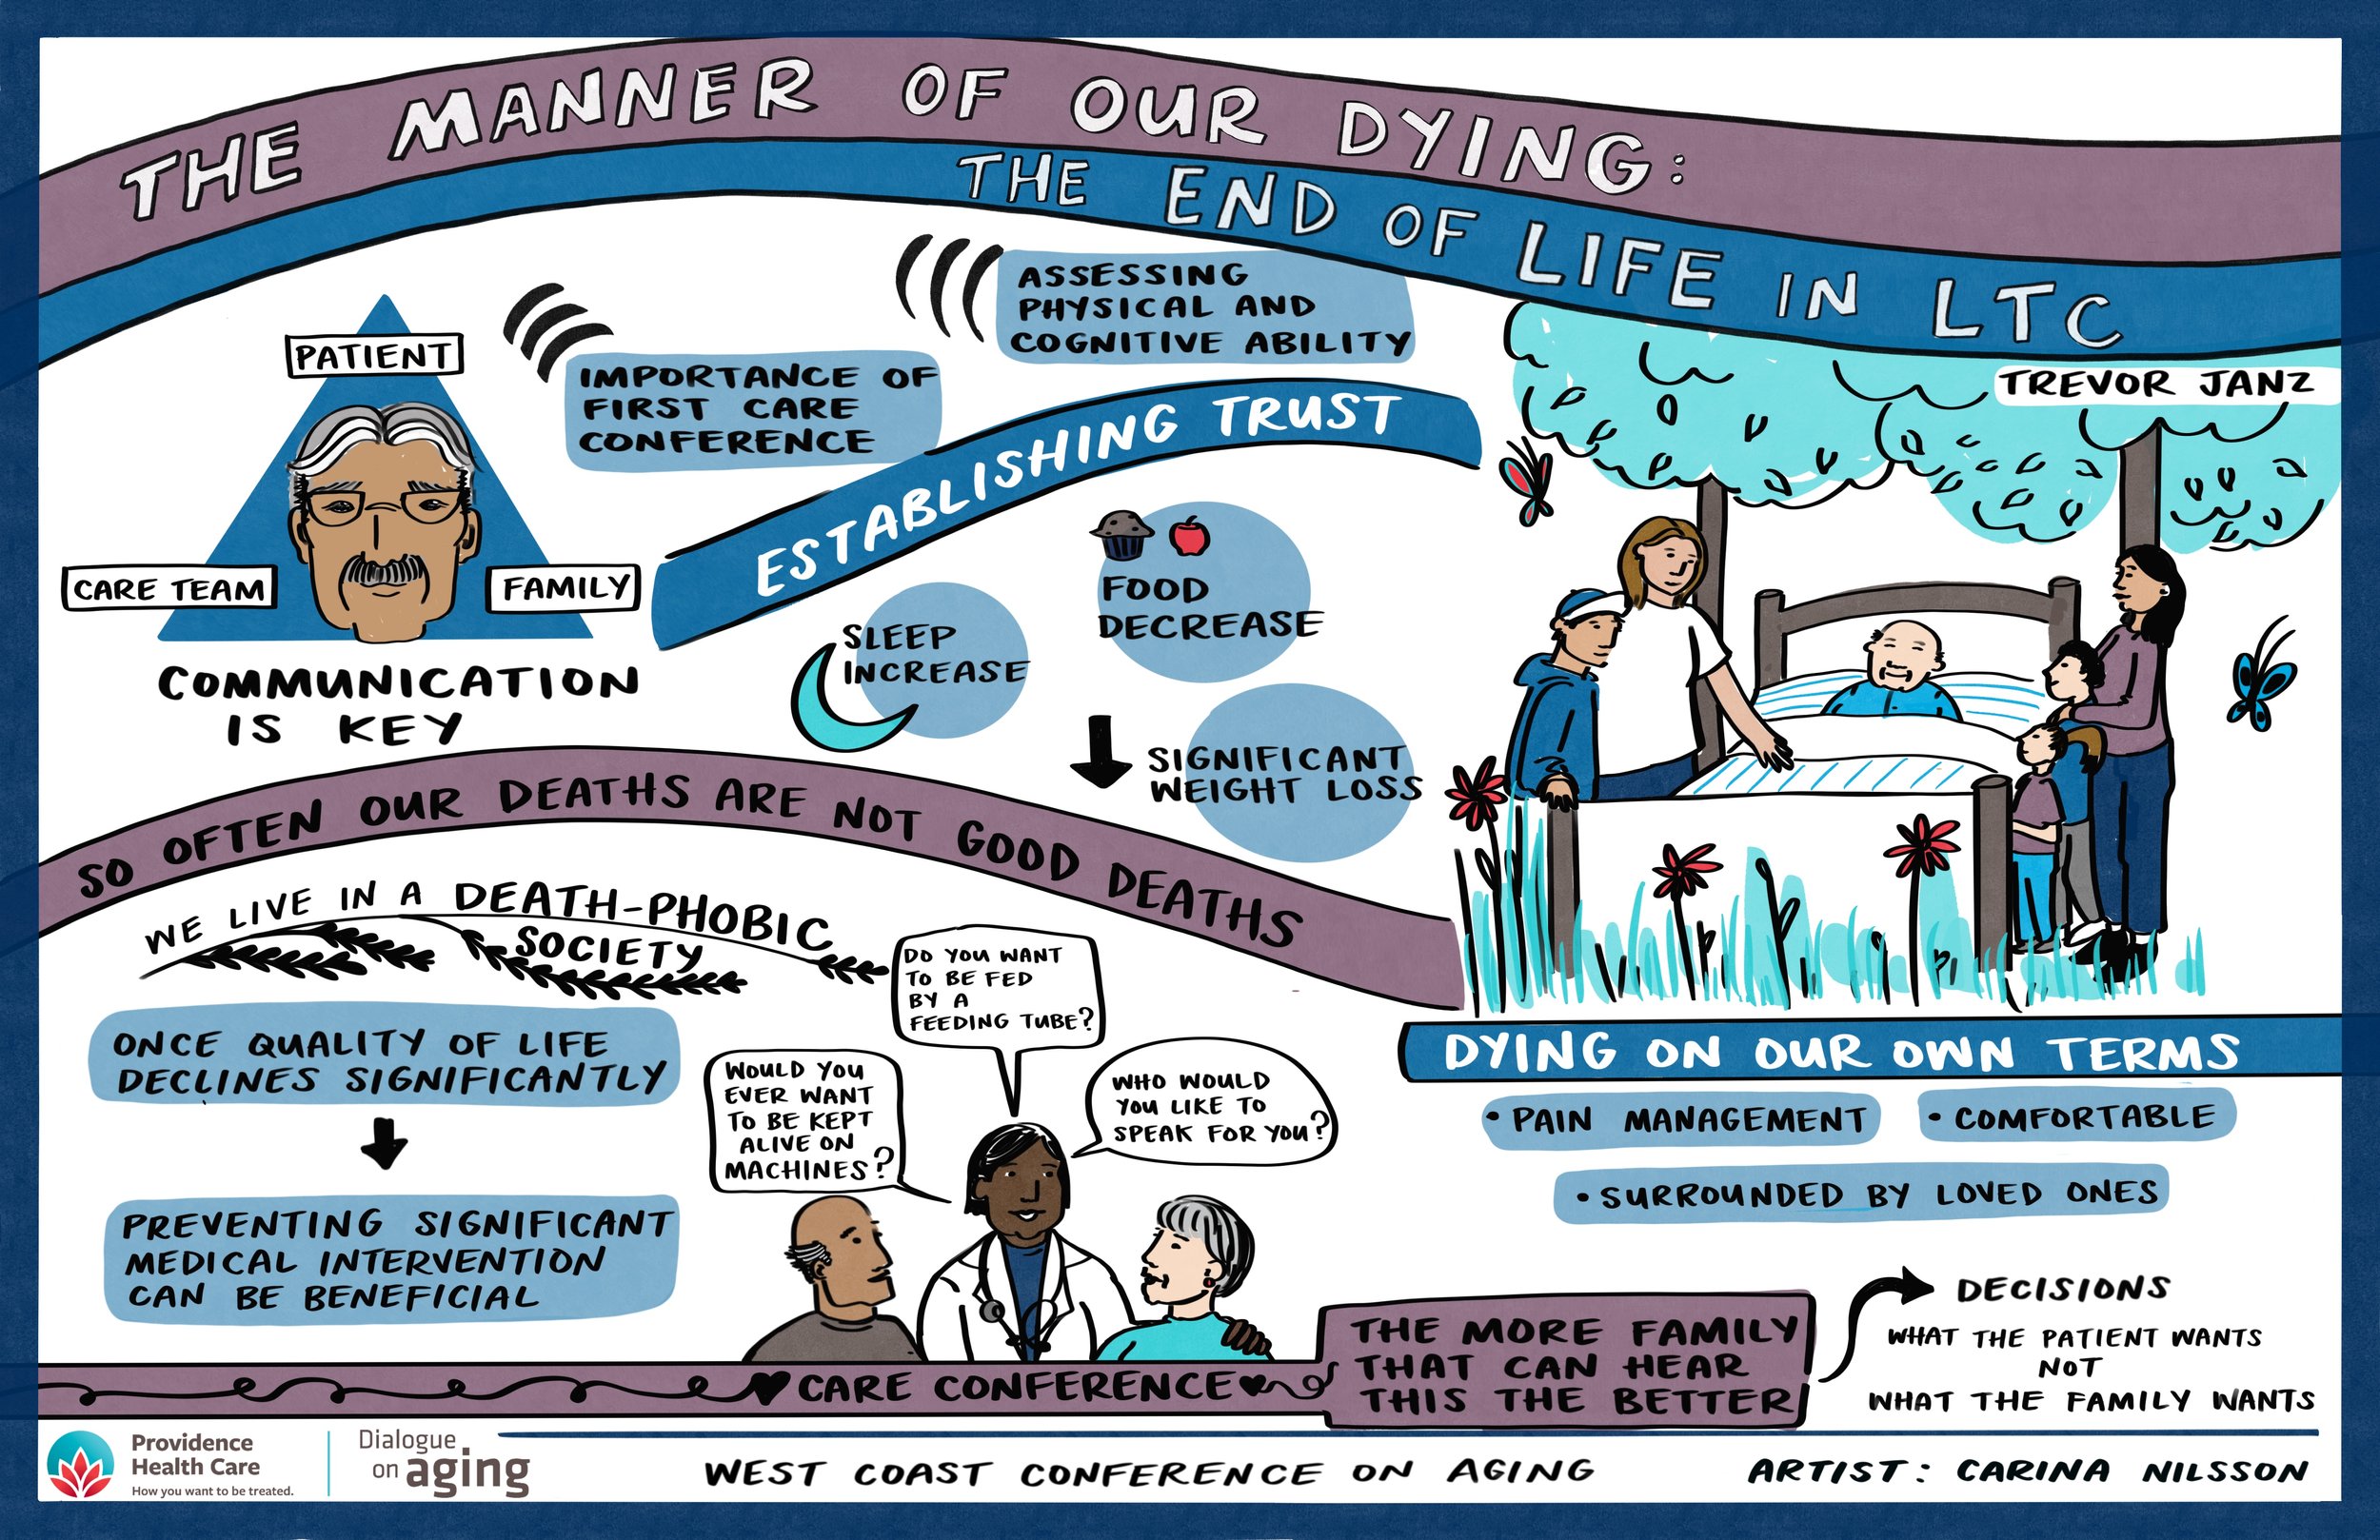 THE MANNER OF OUR DYING:
THE END OF LIFE IN LTC
TREVOR JANZ
PATIENT
CARE TEAM
FAMILY
COMMUNICATION
IS KEY
IMPORTANCE OF
FIRST CARE
CONFERENCE
ASSESSING
PHYSICAL AND
COGNITIVE ABILITY
ESTABLISHING TRUST
SLEEP
INCREASE
FOOD
DECREASE
SIGNIFICANT
WEIGHT LOSS
SO OFTEN OUR DEATHS ARE NOT GOOD DEATHS
WE LIVE IN A DEATH-PHOBIC
SOCIETY
ONCE QUALITY OF LIFE
DECLINES SIGNIFICANTLY
PREVENTING SIGNIFICANT
MEDICAL INTERVENTION
CAN BE BENEFICIAL
WOULD YOU
EVER WANT
TO BE KEPT
ALIVE ON
MACHINES?
DO YOU WANT
TO BE FED
BY A
FEEDING TUBE?
WHO WOULD
YOU LIKE TO
SPEAK FOR YOU?
CARE CONFERENCE
THE MORE FAMILY
THAT CAN HEAR
THIS THE BETTER
DYING ON OUR OWN TERMS
• PAIN MANAGEMENT
• COMFORTABLE
• SURROUNDED BY LOVED ONES
DECISIONS
WHAT THE PATIENT WANTS
NOT
WHAT THE FAMILY WANTS
Providence
Health Care
How you want to be treated.
Dialogue
on aging
WEST COAST CONFERENCE ON AGING
ARTIST: CARINA NILSSON